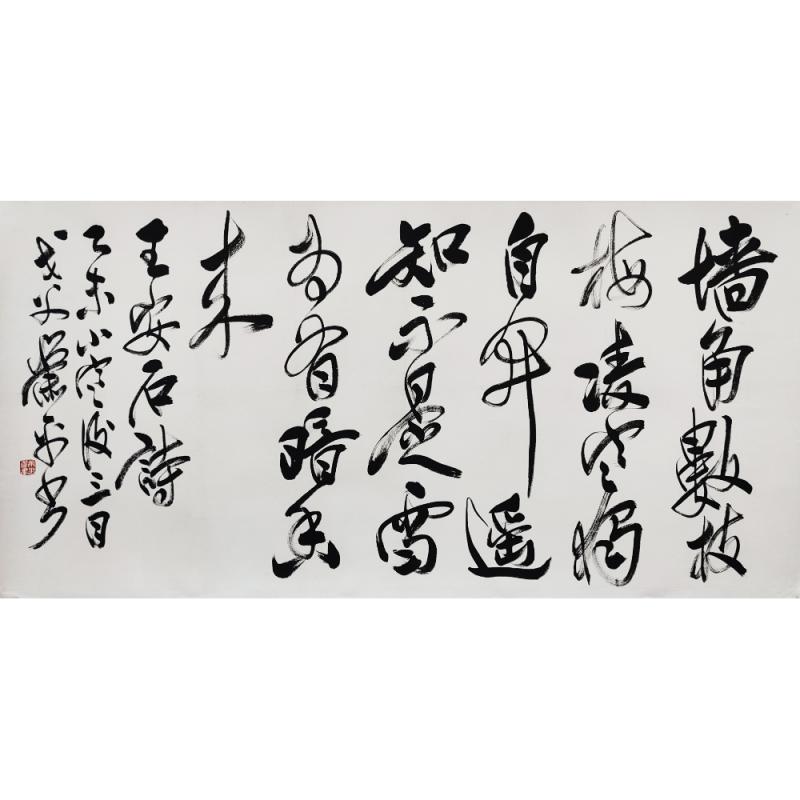 墙角數枝
梅凌寒獨
自開遥
知不是雪
为有暗香
来
王安石詩
乙未小寒後三日
戈父平书